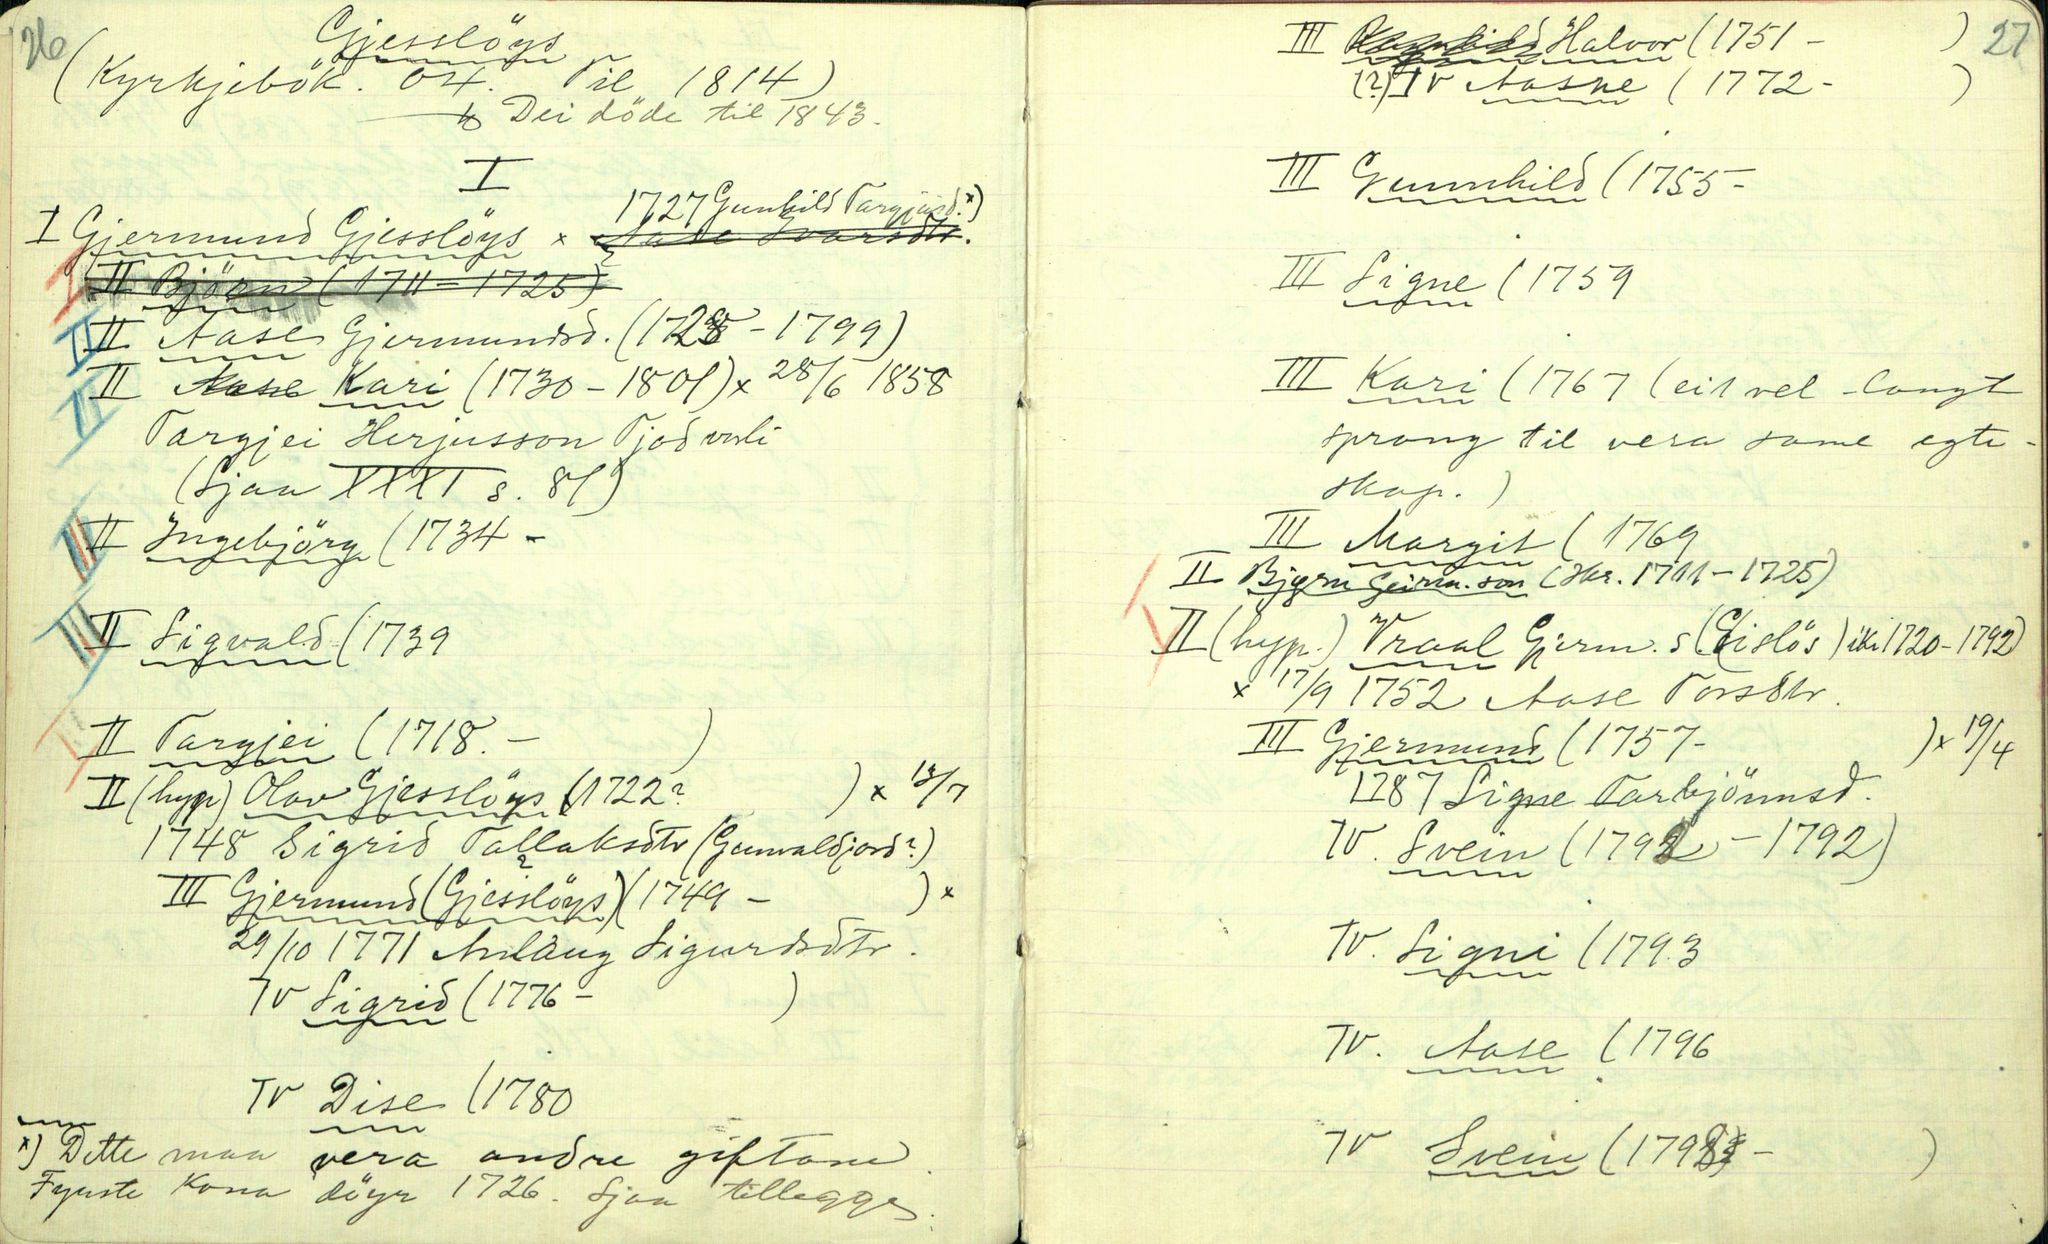 26
Gjesslöys
(Kyrkjebök. 04. Til 1814)
Dei döde til 1843.
I
1727 Gunhild Targjusd.x)
I Gjermund Gjesslöys x Aase Ivarsdtr.
II Björn (1711-1725)
II Aase Gjermundsd. (1728-1799)
II Aase Kari (1730-1801) x 28/6 1858
Targjei Herjusson Tjodvali
(Sjaa XXXI s. 81)
II Ingebjörg (1734 -
II Sigvald (1739
II Targjei (1718. - )
II (hyp) Olav Gjesslöys (1722? ) x 13/7
1748 Sigrid Tallaksdtr (Gunvaldjord?)
III Gjermund (Gjesslöys?) (1749 - ) x
29/10 1771 Anlaug Sigurdsdtr.
IV Sigrid (1776 - )
IV Dise (1780
x) Dette maa vera andre giftone.
Fyrste Kona döyr 1726. Sjaa tillegge.
27
III Ragnhild Halvor (1751 - )
(?) IV Aasne (1772 - )
III Gunnhild (1755 -
III Signe (1759
III Kari (1767 (eit vel langt
sprong til vera same egte-
skap.)
III Margit (1769
II Bjørn Geirm.son (Skr. 1711-1725)
II (hyp.) Vraal Gjerm.s (Gislös) iki 1720-1792)
x 17/9 1752 Aase Torsdtr.
III Gjermund (1757- ) x 19/4
1787 Signe Tarbjönnsd.
IV. Svein (1792 - 1792)
IV. Signi (1793
IV. Aase (1796
IV Svein (1798 - )